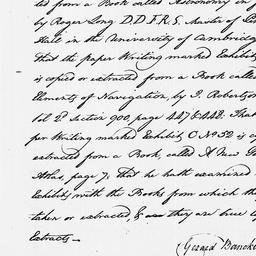 ted from a Book called Astronomy in f
by Roger Long D.D.F.R.S. Master of
Hall in the University of Cambridge
That the paper Writing marked Exhibit
is copied or extracted from a Book calle
Elements of Navigation, by J. Robertson
Vol 2d Section 900, page 447 & 448. That
per Writing marked Exhibit C No 32 is co
extracted from a Book, called A New G
Atlas, page 7; that he hath examined
Exhibits with the Books from which they
taken or extracted, & they are true
Extracts —
Gerard Bancke